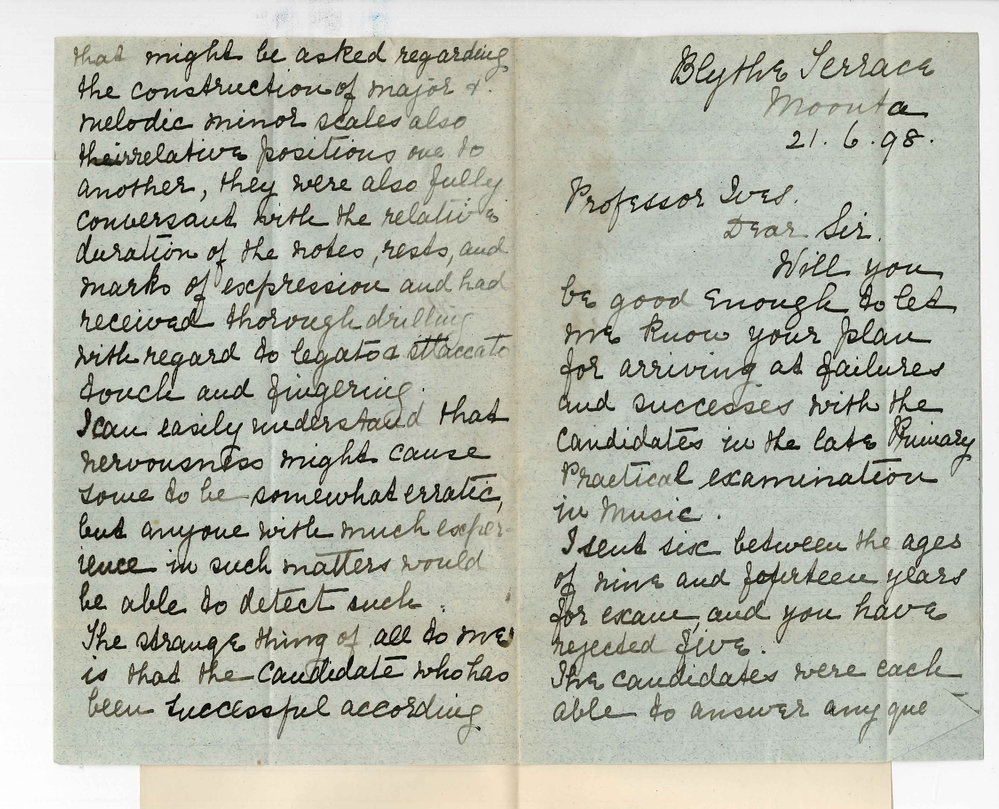 Blythe Terrace
Moonta
21.6.98.
Professor Ives.
Dear Sir.
Will you
be good enough to let
me know your plan
for arriving at failures
and successes with the
candidates in the late Primary
Practical examination
in Music.
I sent six between the ages
of nine and fourteen years
for exam, and you have
rejected five.
The candidates were each
able to answer any que
that might be asked regarding
the construction of major &
melodic minor scales also
their relative positions one to
another, they were also fully
conversant with the relative
duration of the notes, rests, and
marks of expression and had
received thorough drilling
with regard to legato & staccato
touch and fingering.
I can easily understand that
nervousness might cause
some to be somewhat erratic,
but anyone with much exper-
ience in such matters would
be able to detect such.
The strange thing of all to me
is that the candidate who has
been successful according